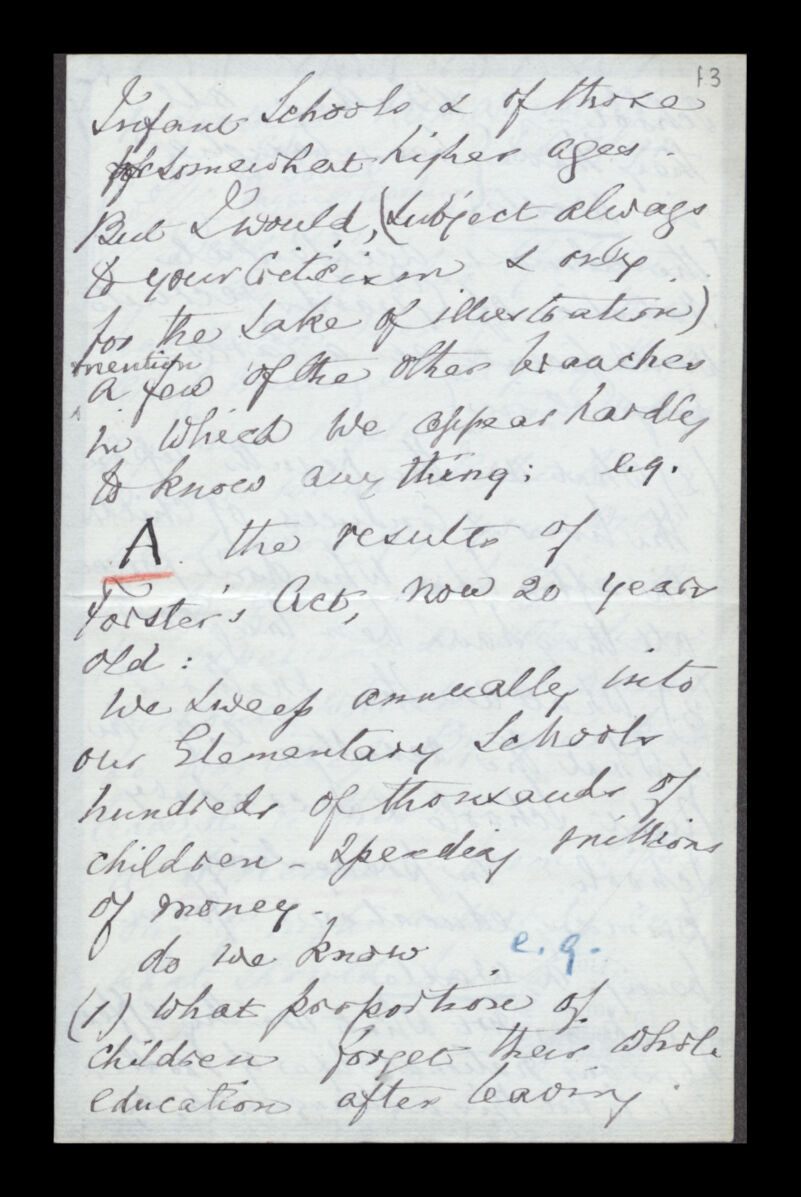 13
Infant Schools & of those
of somewhat higher ages.
But I would, (subject always
to your criticism & only
for the sake of illustration)
mention
a few of the other branches
in which we appear hardly
to know anything; e.g.
A the results of
Forster's Act, now 20 years
old:
We sweep annually into
our Elementary Schools
hundreds of thousands of
children spending millions
of money.
do we know e.g.
(1) What proportion of
children forget their whole
education after leaving